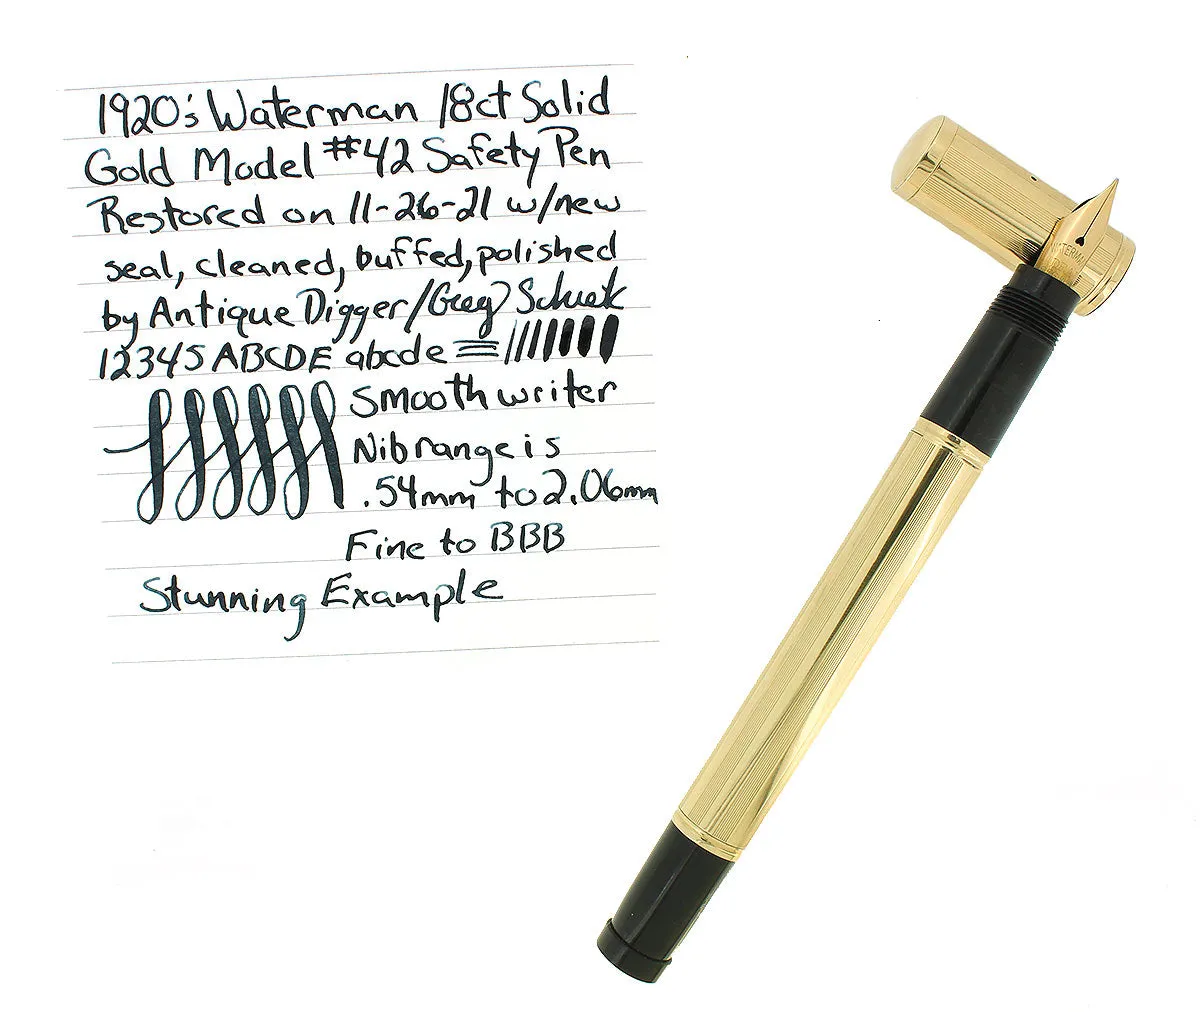 1920's Waterman 18ct Solid
Gold Model #42 Safety Pen
Restored on 11-26-21 w/new
seal, cleaned, buffed, polished
by Antique Digger/Greg
12345 ABCDE abcde
Smooth writer
Nib range is
.54mm to 2.06mm
Fine to BBB
Stunning Example
WATERMAN